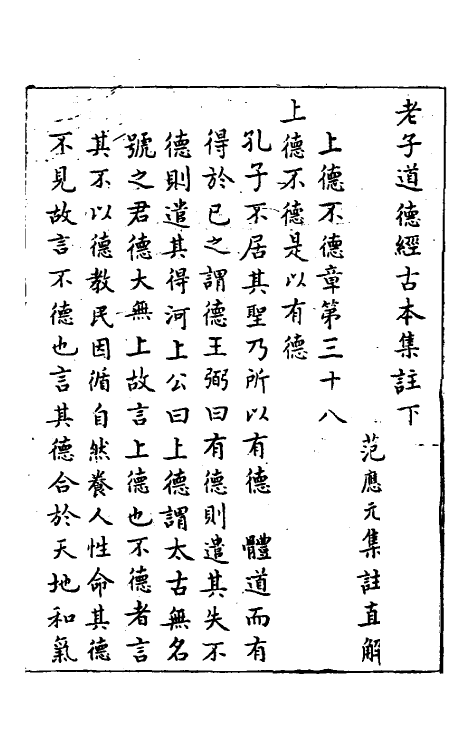 老子道德經古本集註下
范應元集註直解
上德不德章第三十八
上德不德是以有德
孔子不居其聖乃所以有德　體道而有
得於已之謂德王弼曰有德則遣其失不
德則遣其得河上公曰上德謂太古無名
號之君德大無上故言上德也不德者言
其不以德教民因循自然養人性命其德
不見故言不德也言其德合於天地和氣